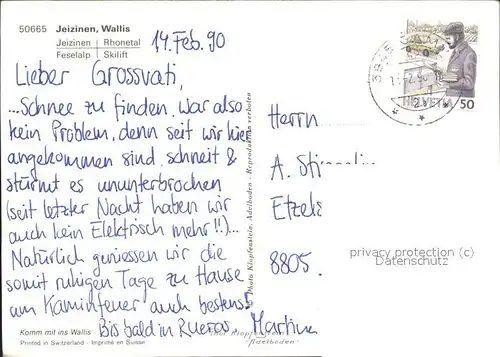 50665 Jeizinen, Wallis
Jeizinen | Rhonetal
Feselalp | Skilift
14. Feb. 90
Lieber Grossvati,
...Schnee zu finden war also
kein Problem, denn seit wir hier
angekommen sind, schneit &
stürmt es ununterbrochen
(seit letzter Nacht haben wir
auch kein Elektrisch mehr!!)...
Natürlich geniessen wir die
somit ruhigen Tage zu Hause
am Kaminfeuer auch bestens!
Bis bald in Rueras, Martina
Komm mit ins Wallis
Printed in Switzerland - Imprimé en Suisse
© Photo Klopfenstein, Adelboden - Reproduktion verboten
Adelboden
HELVETIA 50
Herrn
A.
8805
privacy protection (c)
Datenschutz